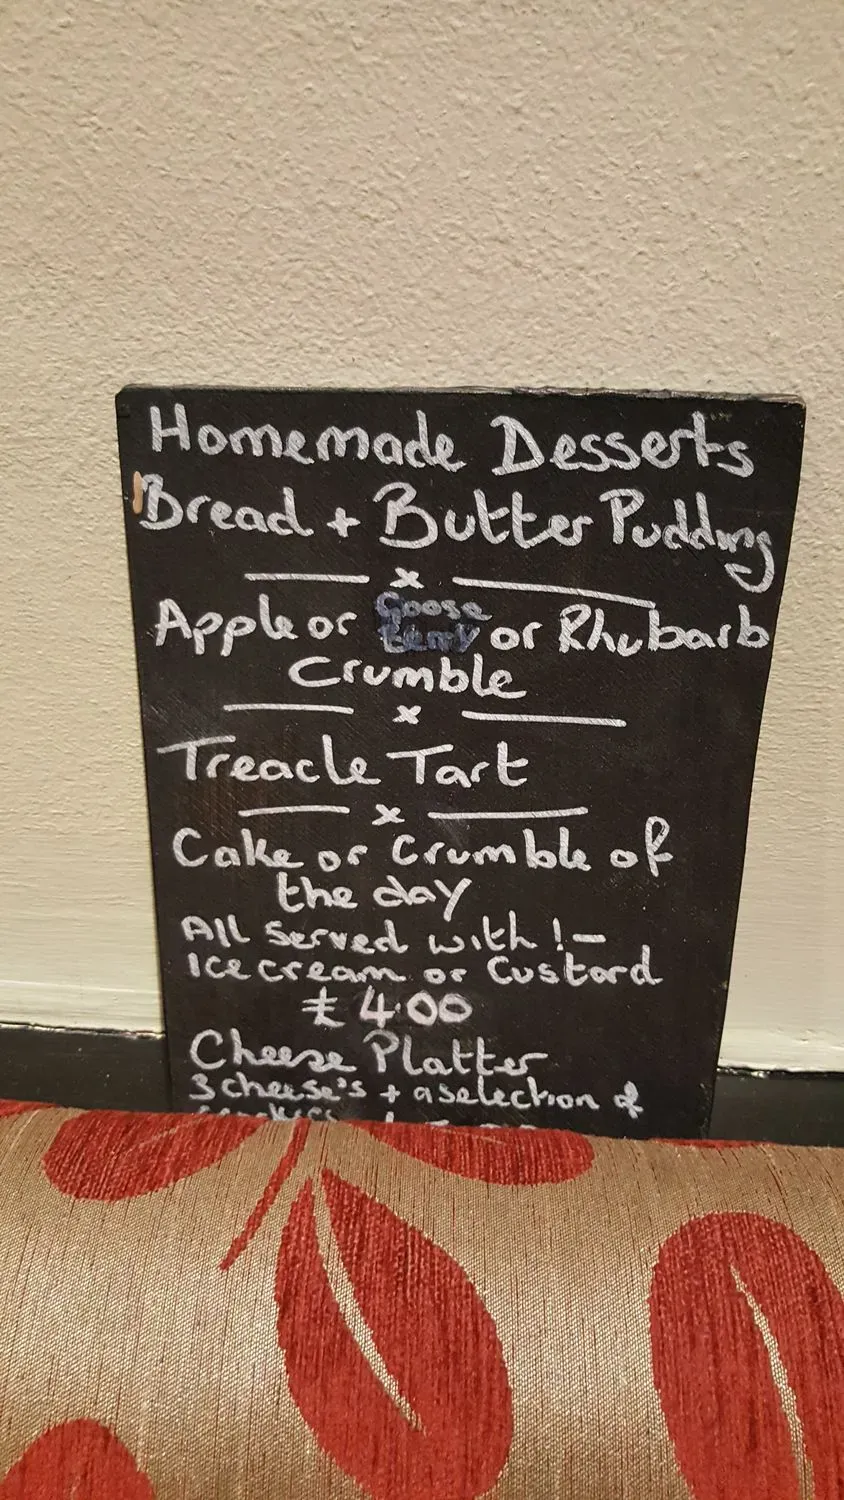 Homemade Desserts
Bread + Butter Pudding
x
Apple or Goose berry or Rhubarb
Crumble
x
Treacle Tart
x
Cake or Crumble of
the day
All Served with !-
Ice cream or Custard
£4.00
Cheese Platter
3 cheese's + a selection of